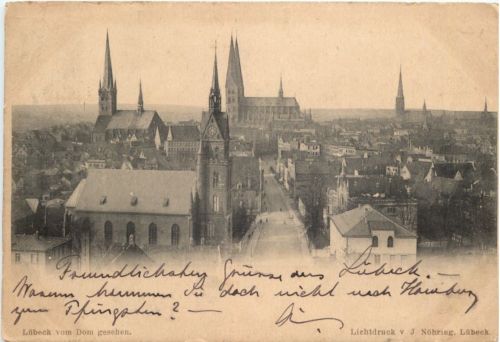 Freundlichsten Gruss aus Lübeck. –
Warum kommen Sie doch nicht nach Hamburg
zum Pfingsten? –
Lübeck vom Dom gesehen.
Lichtdruck v. J. Nöhring, Lübeck.